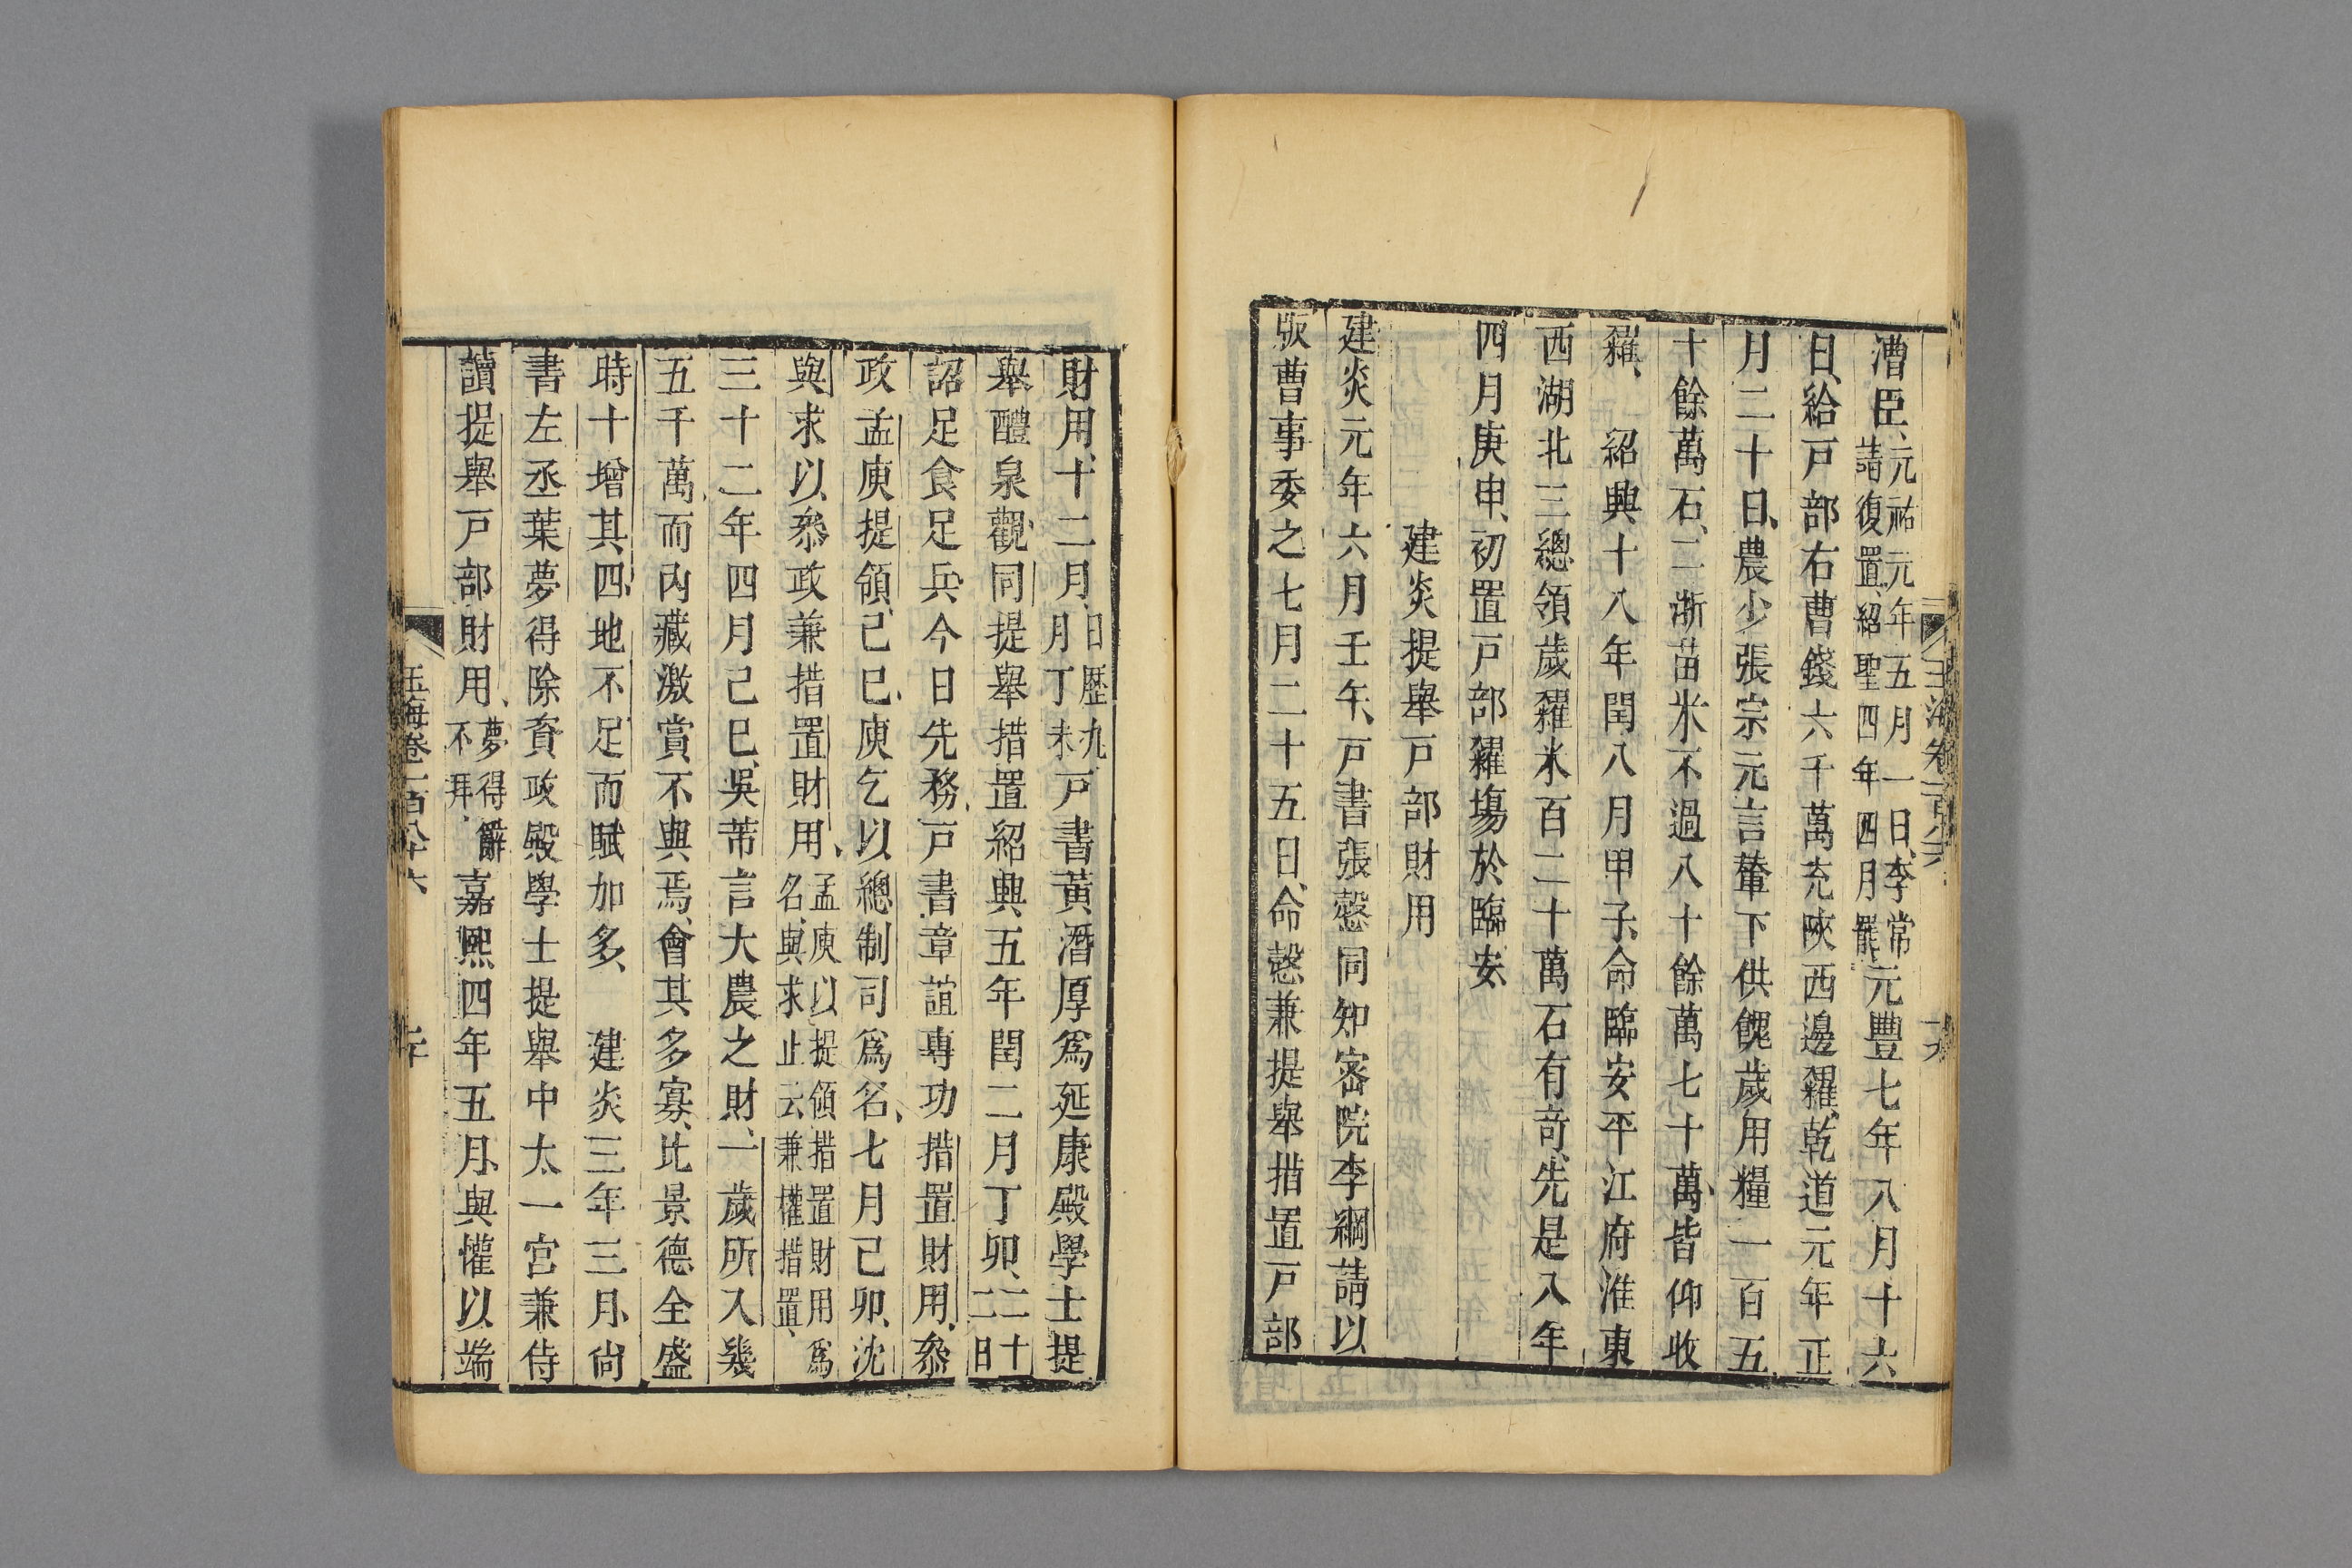 漕臣元祐元年五月一日李常請復置紹聖四年四月罷元豐七年八月十六
日給戸部右曹錢六千萬充陜西邊糴乾道元年正
月二十日農少張宗元言輦下供餽歲用糧一百五
十餘萬石二浙苗米不過八十餘萬七十萬皆仰收
糴　紹興十八年閏八月甲子命臨安平江府淮東
西湖北三總領歲糴米百二十萬石有奇先是入年
四月庚申初置戸部糴塲於臨安
建炎提舉戸部財用
建炎元年六月壬午戸書張慤同知密院李綱請以
版曹事委之七月二十五日命慤兼提舉措置戸部
財用十二月日歷九月丁未戸書黃潛厚爲延康殿學士提
舉醴泉觀同提舉措置紹興五年閏二月丁卯二十二日
詔足食足兵今日先務戸書章誼專功措置財用叅
政孟庾提領己巳庾乞以總制司爲名七月己卯沈
與求以叅政兼措置財用孟庾以提領措置財用爲名與求止云兼權措置
三十二年四月己巳吳芾言大農之財一歲所入幾
五千萬而內藏激賞不與焉會其多寡比景德全盛
時十增其四地不足而賦加多　建炎三年三月尙
書左丞葉夢得除資政殿學士提舉中太一宮兼侍
讀提舉戸部財用夢得辭不拜嘉熙四年五月與懽以端
玉海卷一百八十六
二十